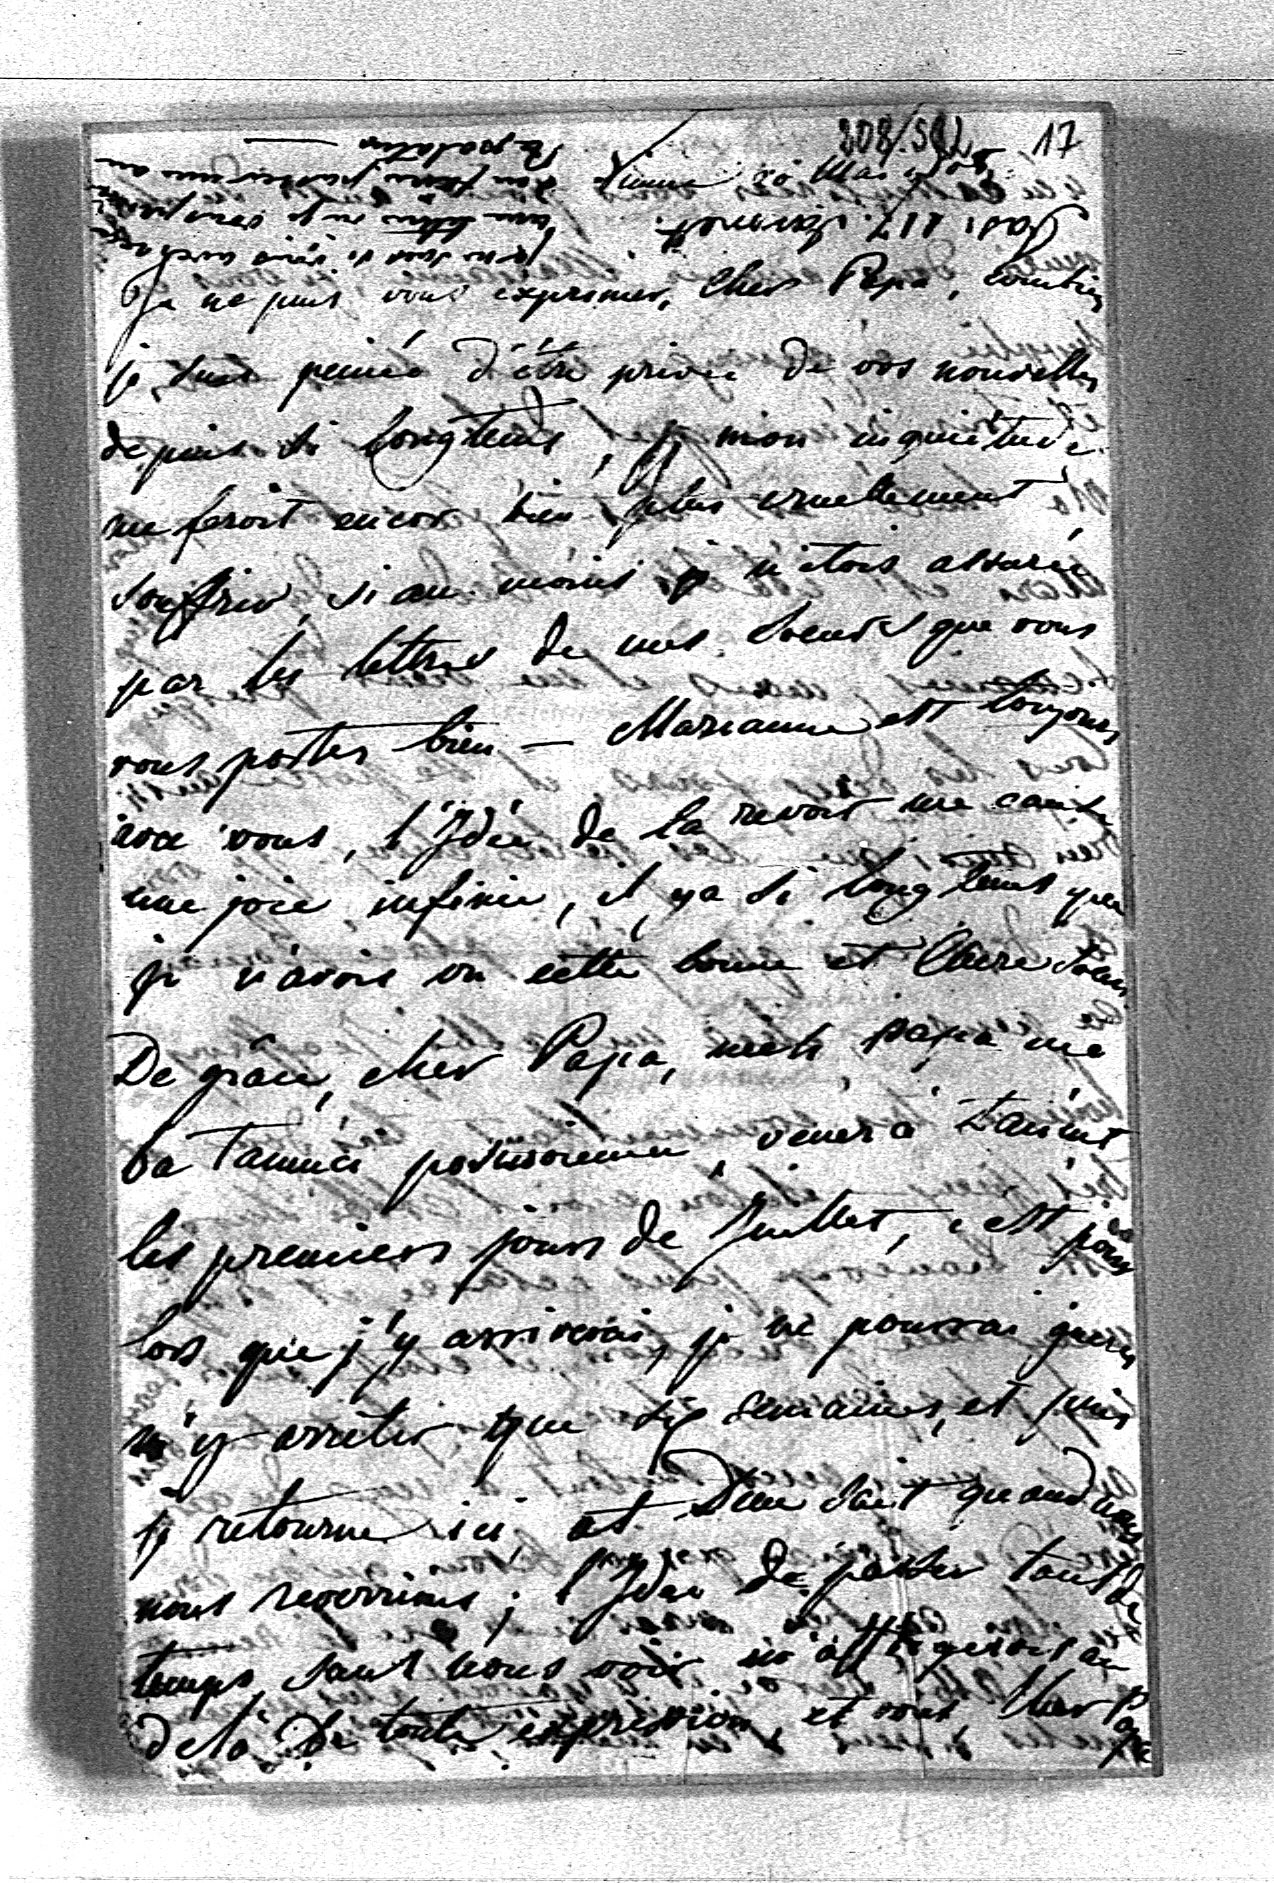 208/592 17
Vienne 20 Mai
Je ne puis vous exprimer, cher Papa, combien
je suis peinée d'être privée de vos nouvelles
depuis si longtems, mon inquiétude
me feroit encor bien plus cruellement
souffrir, si au moins je n'étois assurée
par les lettres de mes Soeurs que vous
vous portes bien — Marianne est toujours
avec vous, l'Idée de la revoir me cause
une joie infinie, il y a si longtems que
je n'avois vu cette bonne et chere Soeur
De grâce, cher Papa,
venes à Lancut
les premiers jours de Juillet, c'est pour
lors que j'y arriverai, je ne pourrai gueres
m'y arreter que six semaines, et puis
je retourne ici et Dieu sait quand nous
nous reverrions; l'Idée de passer tant de
temps sans vous voir m'affligerois au
delà de toute expression, et vous cher Papa